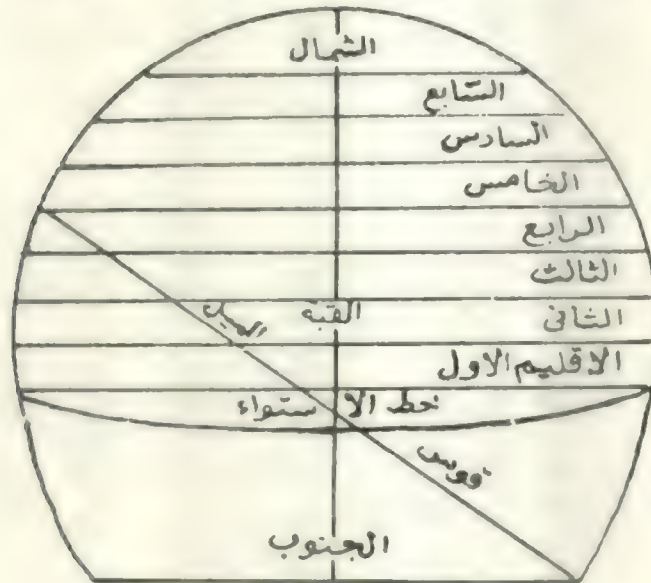 الشمال
السّابع
السادس
الخامس
الرابع
الثالث
القبة
الثانى
الاقليم الاول
خط الاستواء
الجنوب